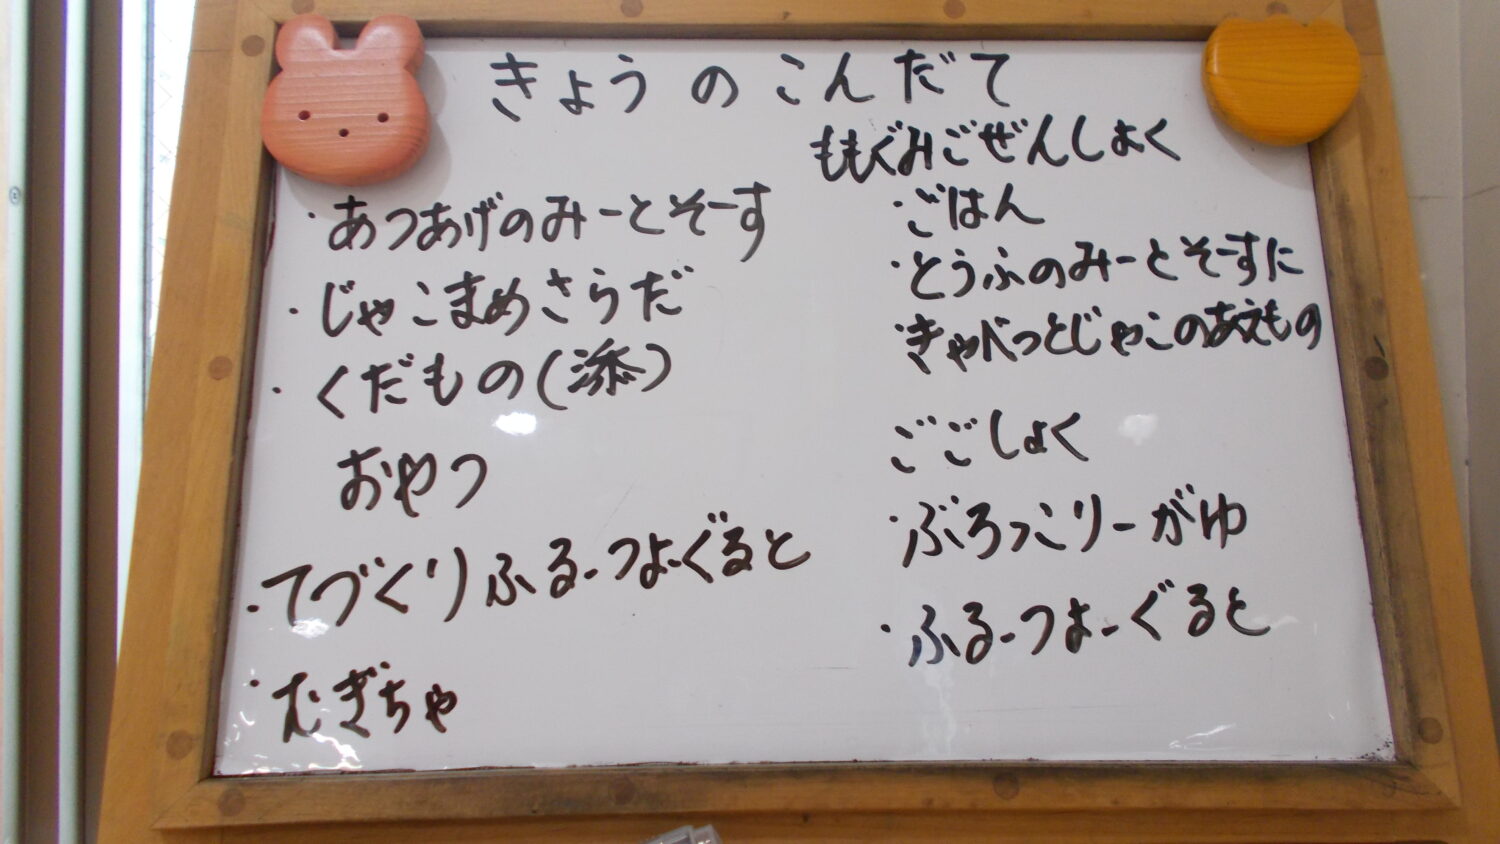 きょうのこんだて
・あつあげのみーとそーす
・じゃこまめさらだ
・くだもの(添)
おやつ
・てづくりふるーつよーぐると
・むぎちゃ
ももぐみごぜんしょく
・ごはん
・とうふのみーとそーすに
・きゃべつとじゃこのあえもの
ごごしょく
・ぶろっこりーがゆ
・ふるーつよーぐると